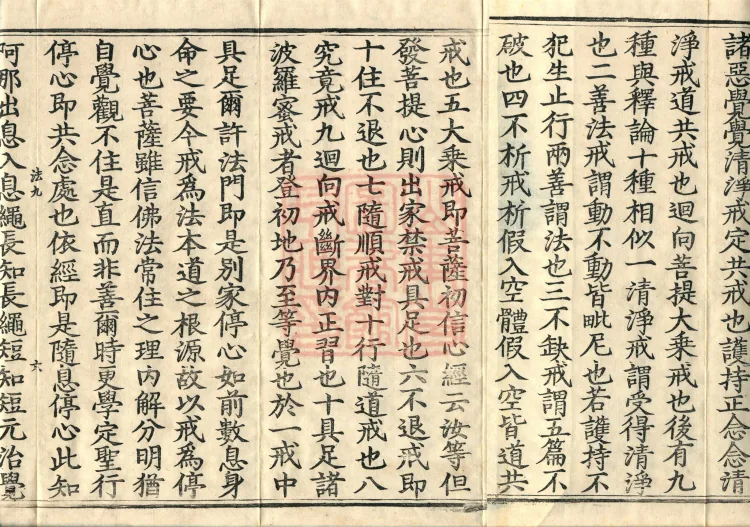 諸惡覺覺清淨戒定共戒也護持正念念清
淨戒道共戒也迴向菩提大乘戒也後有九
種與釋論十種相似一清淨戒謂受得清淨
也二善法戒謂動不動皆毗尼也若護持不
犯生止行兩善謂法也三不缺戒謂五篇不
破也四不析戒析假入空體假入空皆道共
戒也五大乘戒即菩薩初信心經云汝等但
發菩提心則出家禁戒具足也六不退戒即
十住不退也七隨順戒對十行隨道戒也八
究竟戒九迴向戒斷界内正習也十具足諸
波羅蜜戒者登初地乃至等覺也於一戒中
具足爾許法門即是別家停心如前數息身
命之要今戒爲法本道之根源故以戒爲停
心也菩薩雖信佛法常住之理内解分明猶
自覺觀不住是直而非善爾時更學定聖行
停心即共念處也依經即是隨息停心此知
法九
六
阿那出息入息繩長知長繩短知短元治覺